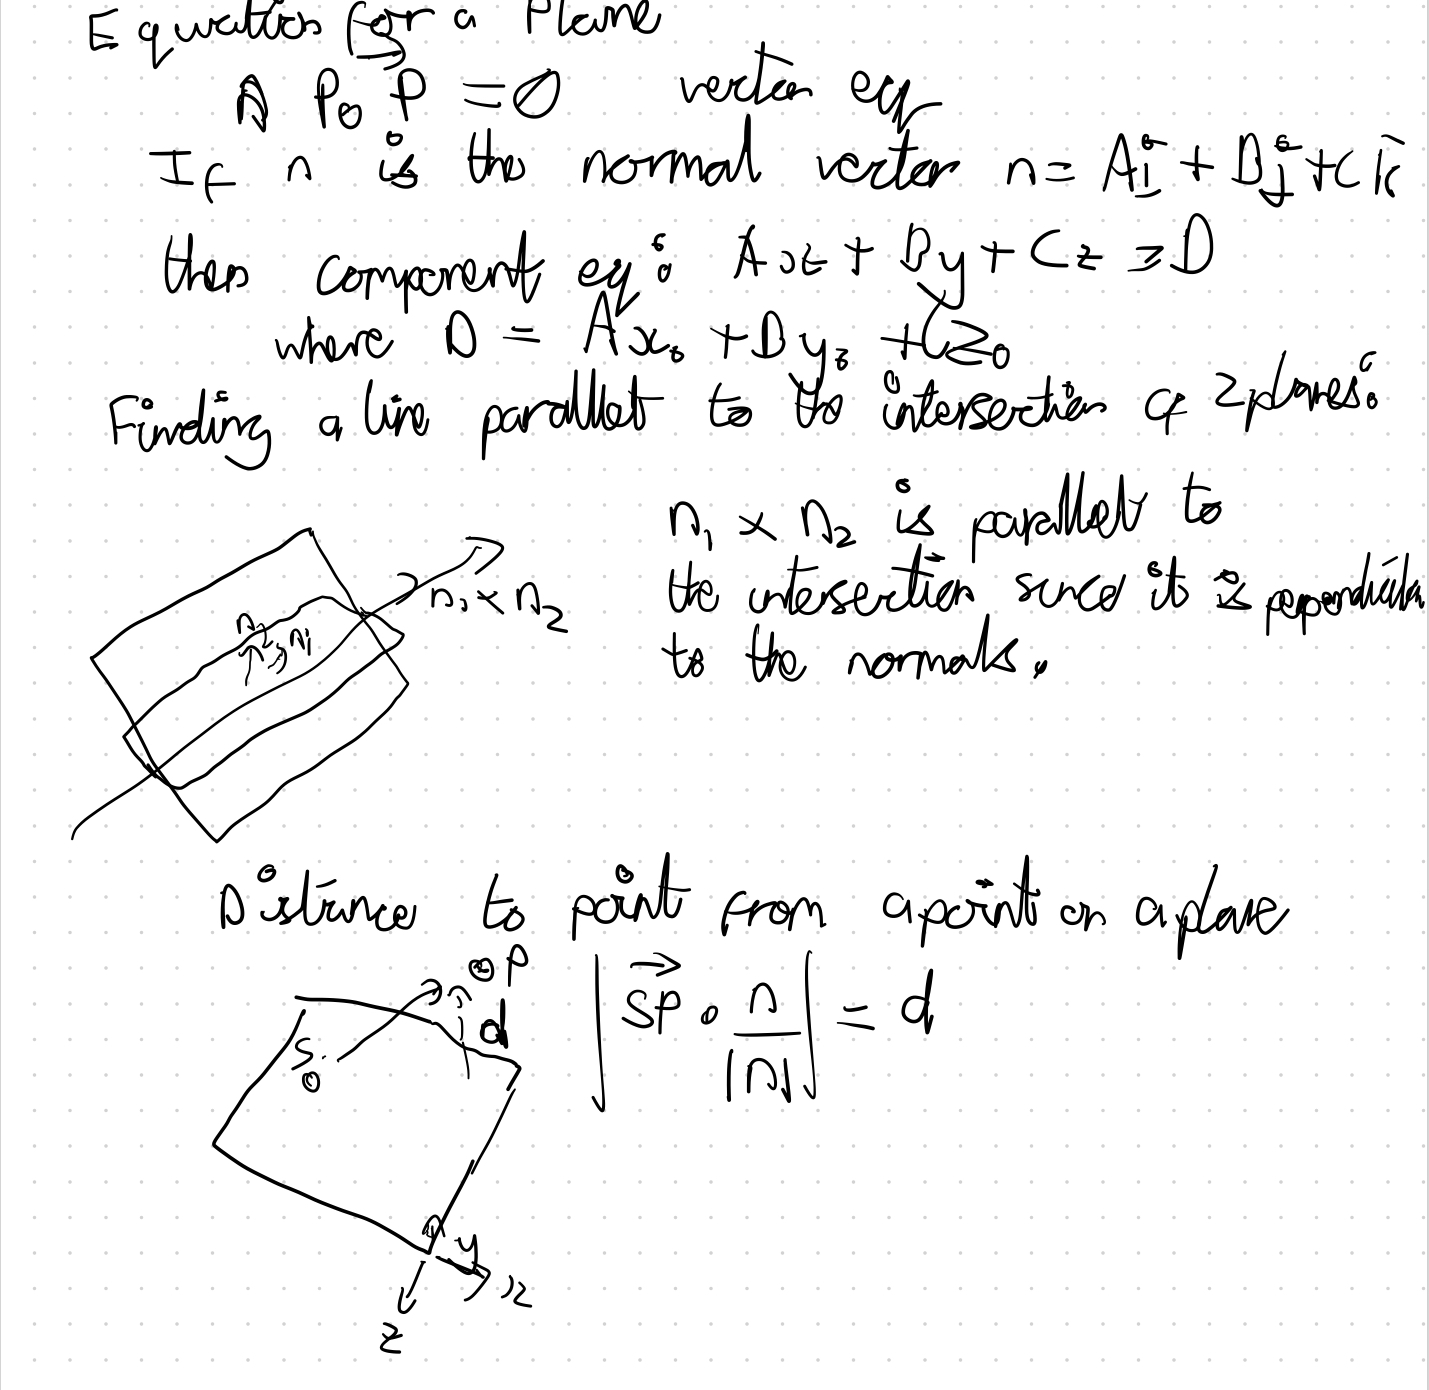 Equation for a Plane
n P₀P = 0 vector eq
If n is the normal vector n = Ai + Bj + Ck
then component eq: Ax + By + Cz = D
where D = Ax₀ + By₀ + Cz₀
Finding a line parallel to the intersection of 2 planes:
n₁ × n₂ is parallel to
the intersection since it is perpendicular
to the normals.
n₁ × n₂
n₂ n₁
Distance to point from a point on a plane
P
S
d
|SP • n/|n|| = d
y
x
z